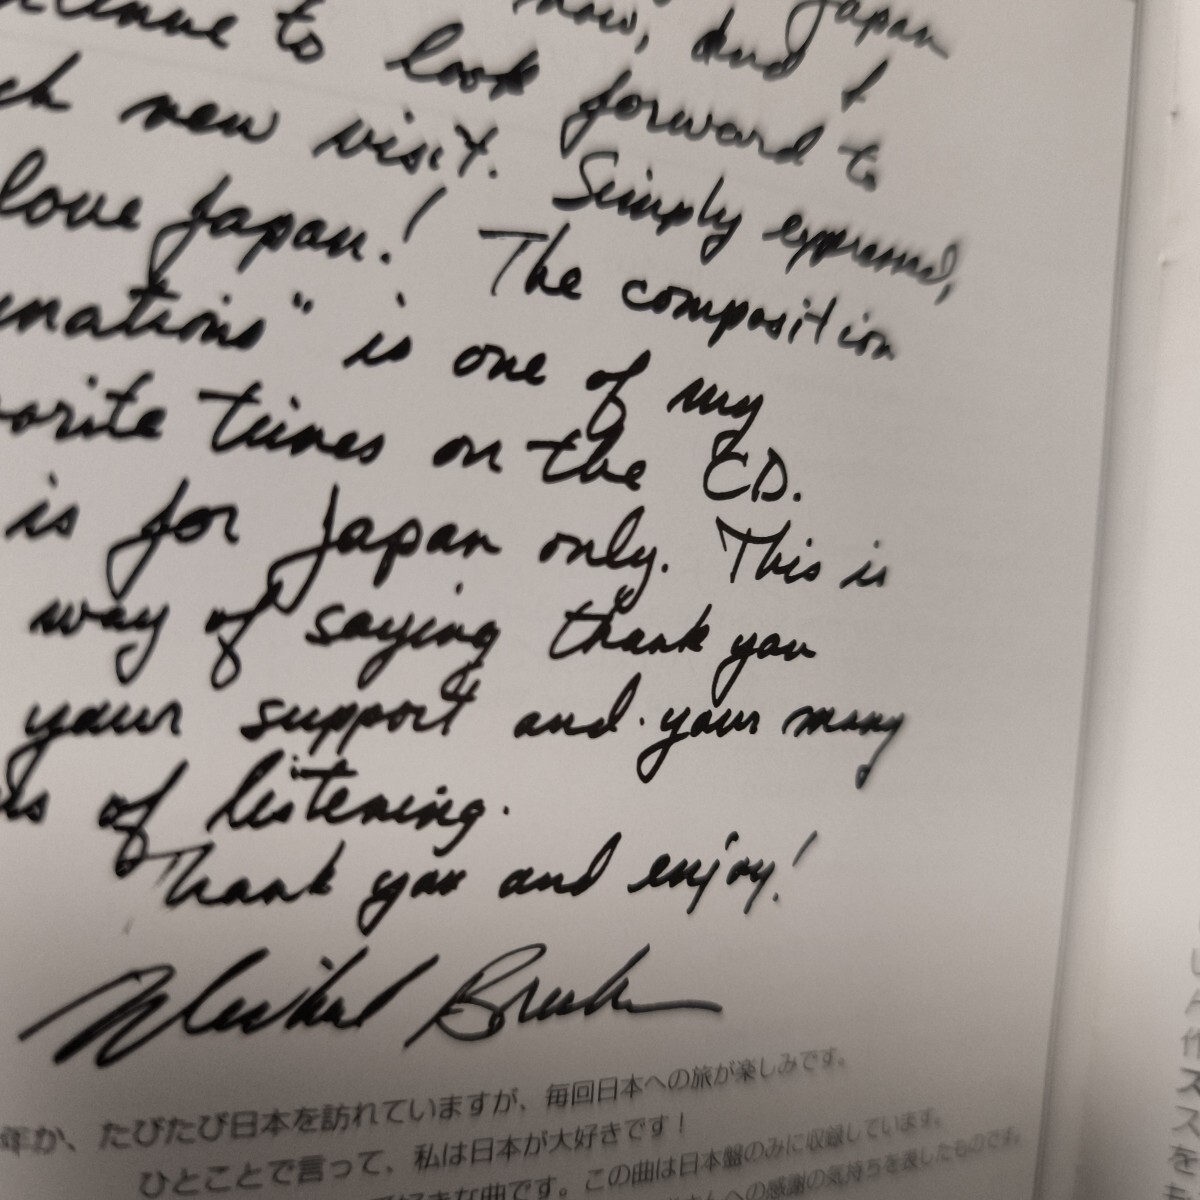 Japan
now, and I
to look forward to
new visit. Simply expressed,
love Japan! The composition
nations" is one of my
orite tunes on the CD.
is for Japan only. This is
way of saying thank you
your support and your many
of listening.
Thank you and enjoy!
Michael
年か、たびたび日本を訪れていますが、毎回日本への旅が楽しみです。
ひとことで言って、私は日本が大好きです！
好きな曲です。この曲は日本盤のみに収録しています。
への感謝の気持ちを表したものです。